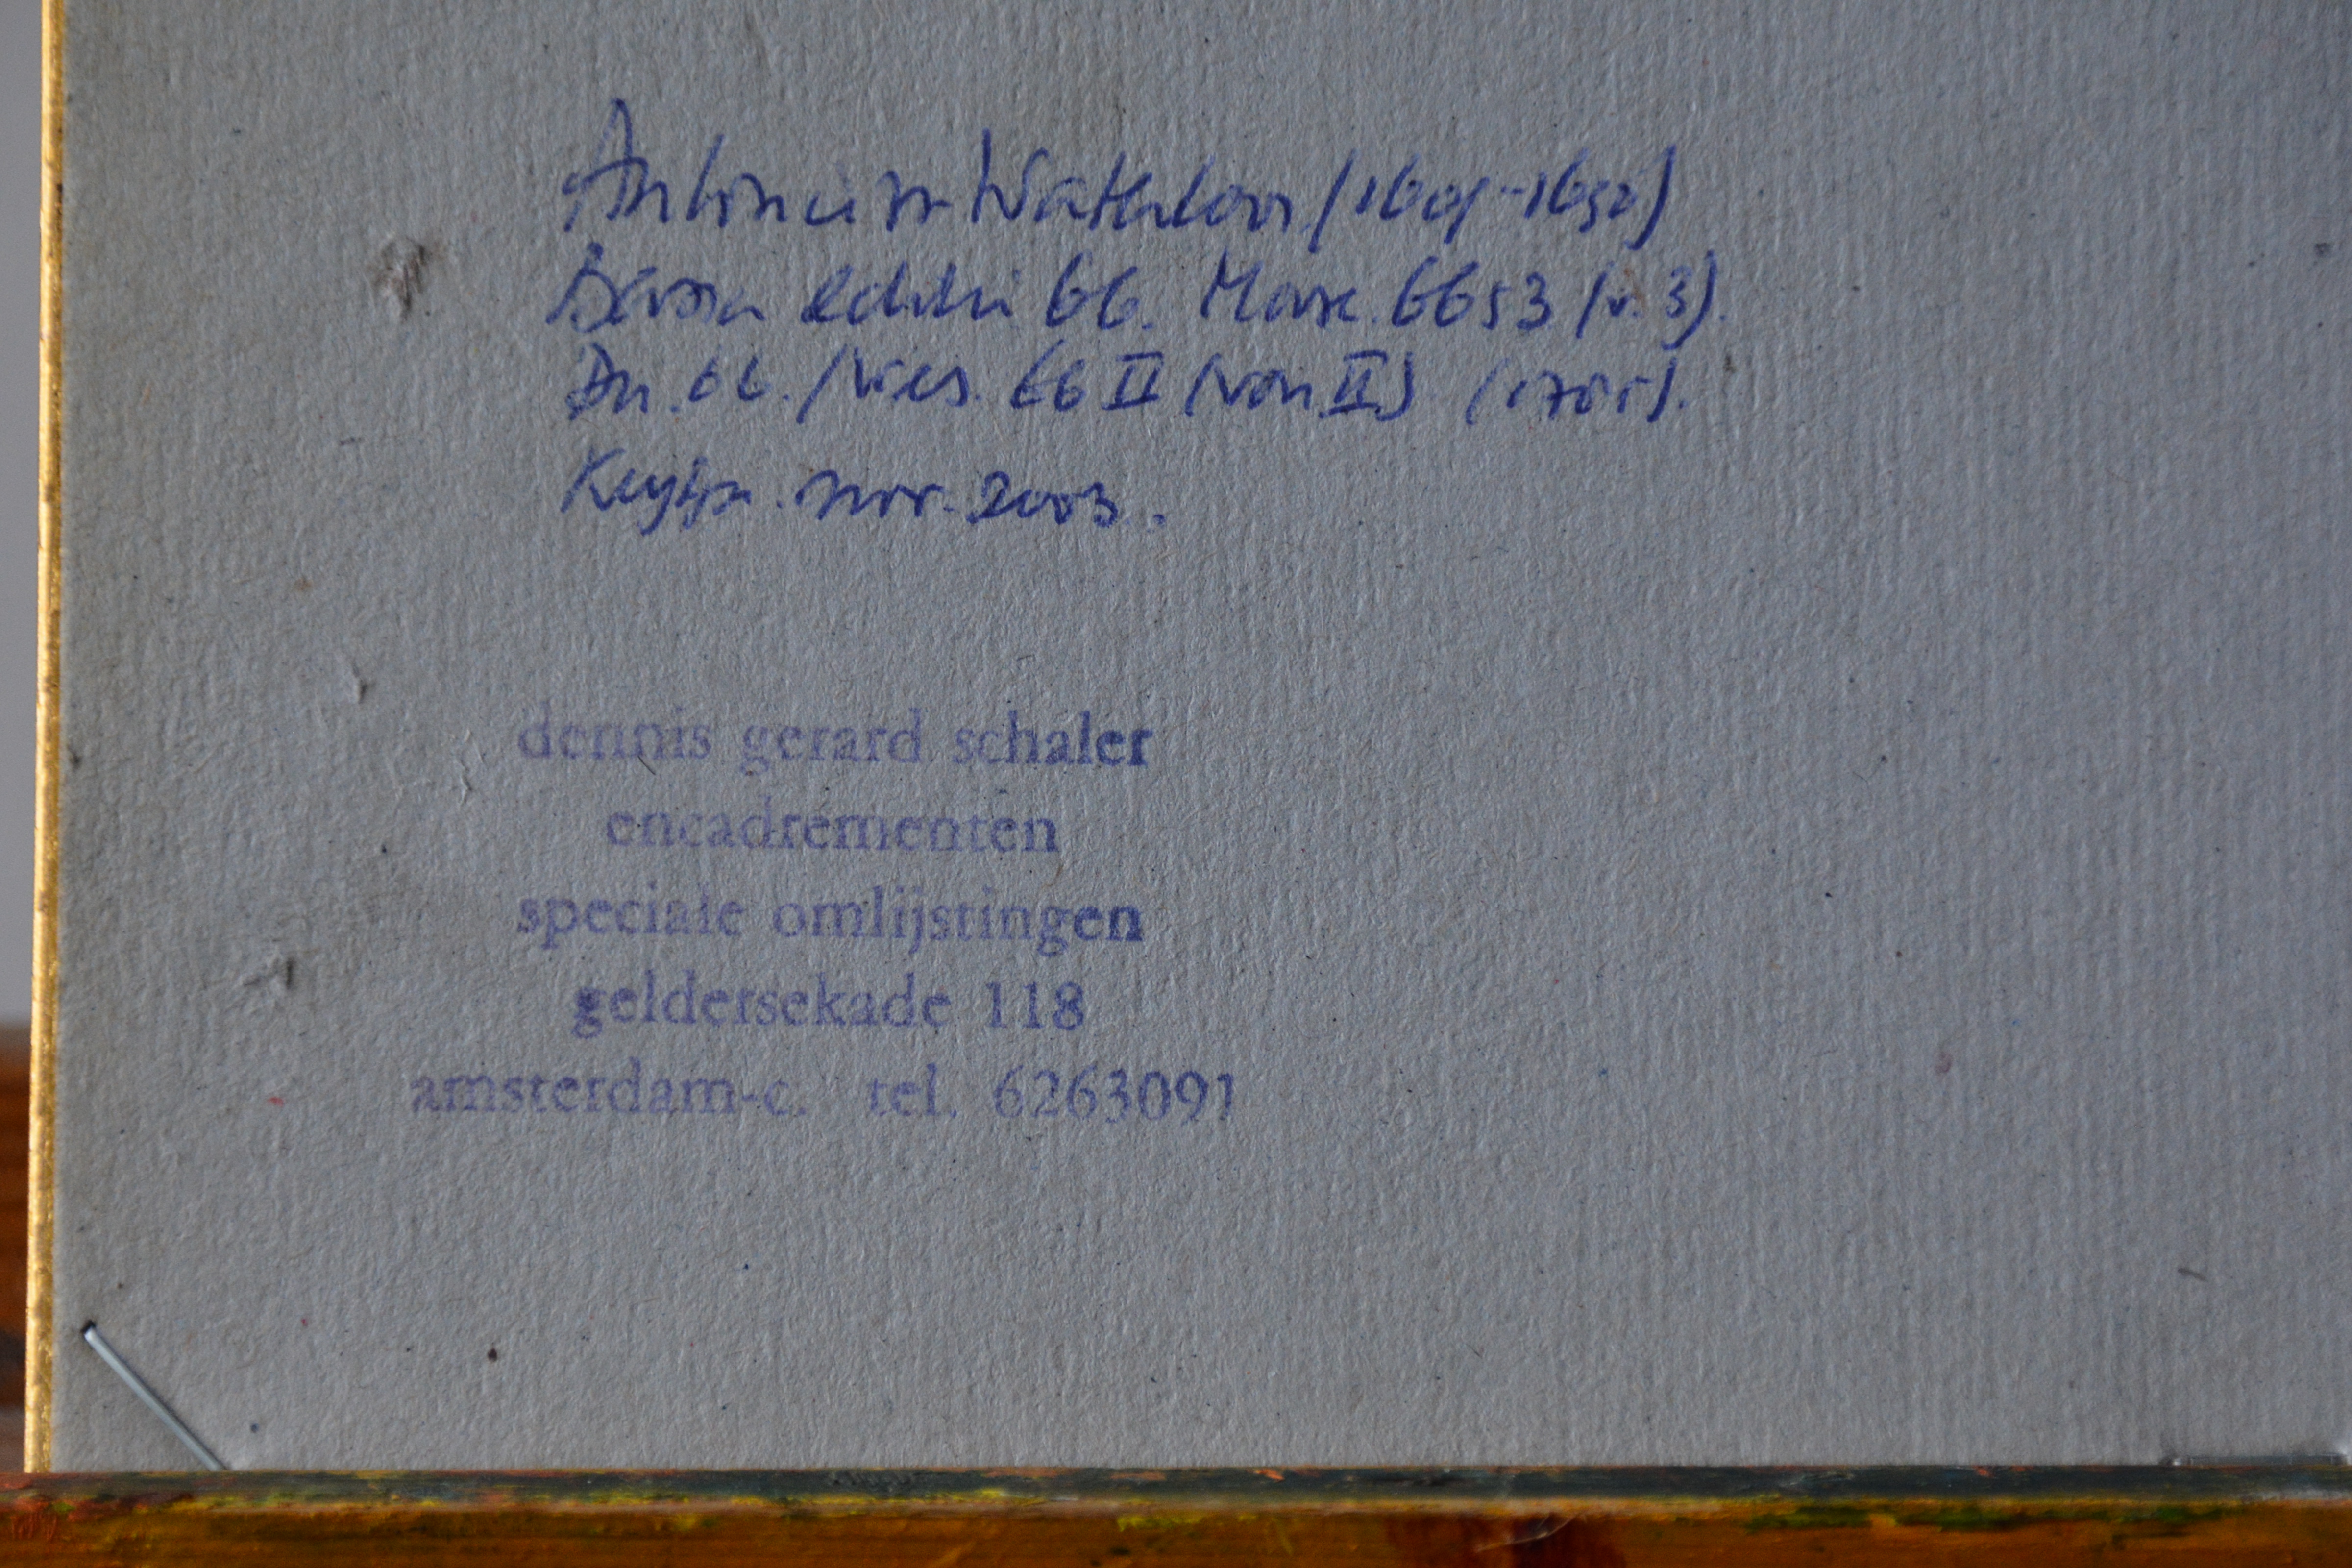 Antonie Waterloo (1609-1690)
Basan editie 66. 6653 (v. 3).
66. 66 II (van II)
nov. 2003.
dennis gerard schaler
encadrementen
speciale omlijstingen
geldersekade 118
amsterdam-c. tel. 6263091